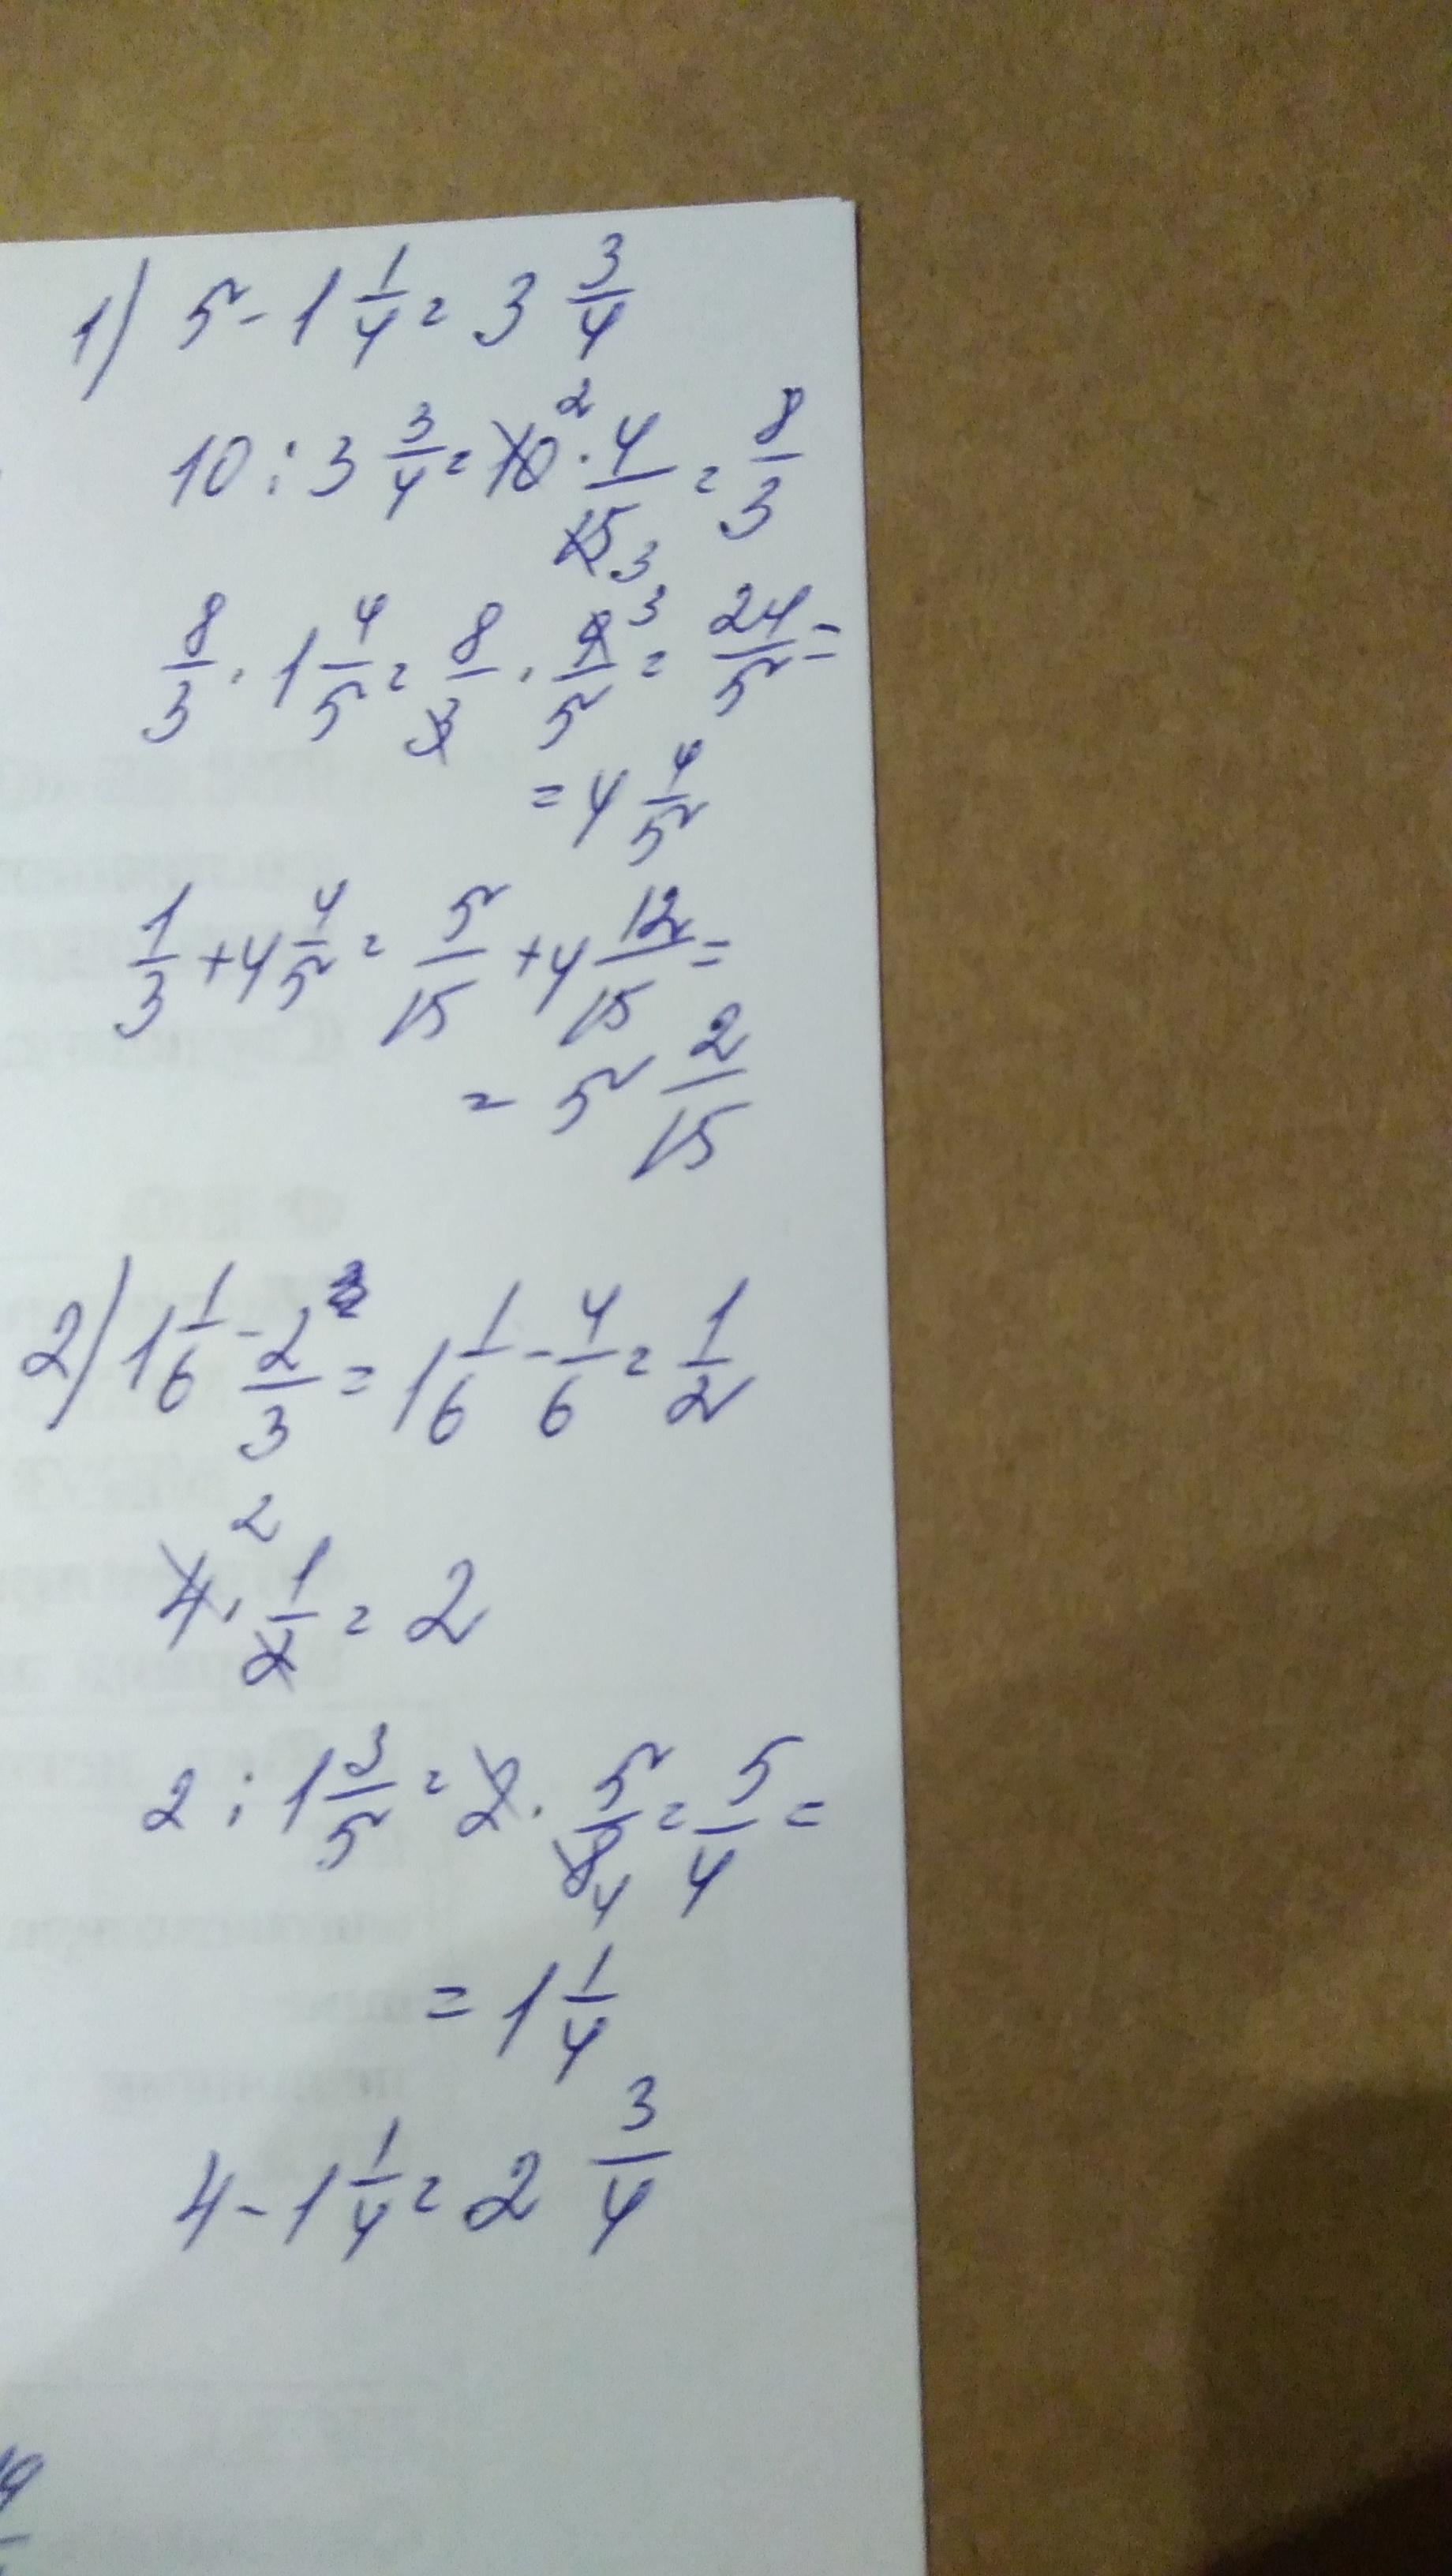 1) 5 - 1 1/4 = 3 3/4
10 : 3 3/4 = 10 2 · 4/15 3 = 8/3
8/3 · 1 4/5 = 8/3 · 9/5 3 = 24/5 =
= 4 4/5
1/3 + 4 4/5 = 5/15 + 4 12/15 =
= 5 2/15
2) 1 1/6 - 2/3 = 1 1/6 - 4/6 = 1/2
2
4 · 1/2 = 2
2 : 1 3/5 = 2 · 5/8 4 = 5/4 =
= 1 1/4
4 - 1 1/4 = 2 3/4